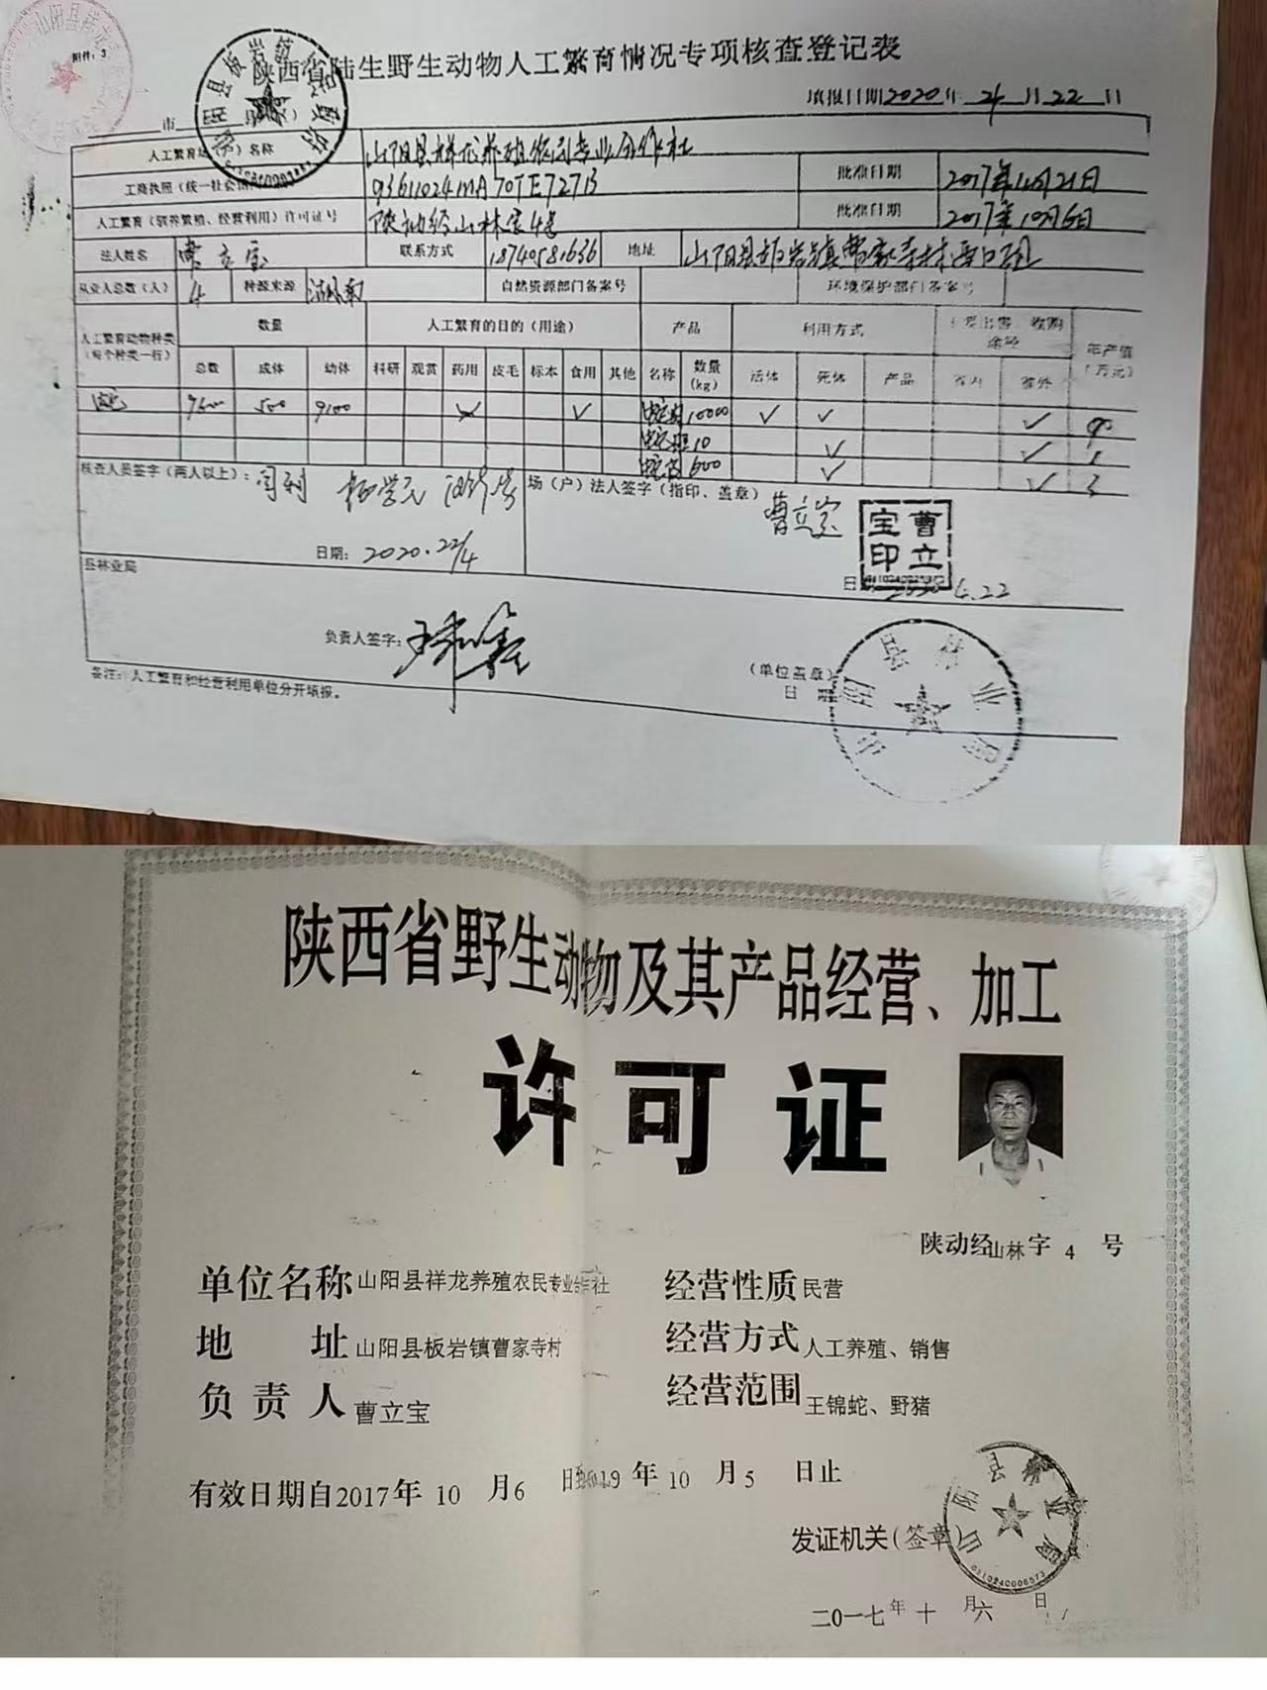 附件：3
陕西省陆生野生动物人工繁育情况专项核查登记表
填报日期2020年4月22日
人工繁育场（户）名称 山阳县祥龙养殖农民专业合作社
工商执照（统一社会 93611024MA70TE727B 批准日期 2017年
人工繁育（驯养繁殖、经营利用）许可证号 陕动经山林字4号 批准日期 2017年10月6日
法人姓名 曹立宝 联系方式 18740581636 地址 山阳县板岩镇曹家寺村
从业人总数（人） 4 种源来源 湖南 自然资源部门备案号 环境保护部门备案号
人工繁育动物种类（每个种类一行） 数量 人工繁育的目的（用途） 产品 利用方式 主要出售、收购途径 年产值（万元）
总数 成体 幼体 科研 观赏 药用 皮毛 标本 食用 其他 名称 数量（kg） 活体 死体 产品 省内 省外
蛇 9600 500 9100 ✓ 10000 ✓ ✓ ✓
10 ✓ ✓ 1
600 ✓ ✓ 3
核查人员签字（两人以上）： 场（户）法人签字（指印、盖章） 曹立宝
曹立宝印
日期： 2020.22/4 4.22
县林业局
负责人签字：
（单位盖章）
日期
山阳县林业局
备注：人工繁育和经营利用单位分开填报。
陕西省野生动物及其产品经营、加工
许可证
陕动经山林字 4 号
单位名称 山阳县祥龙养殖农民专业合作社 经营性质 民营
地址 山阳县板岩镇曹家寺村 经营方式 人工养殖、销售
负责人 曹立宝 经营范围 王锦蛇、野猪
有效日期自2017年 10 月6 日至2019 年 10 月 5 日止
发证机关（签章
山阳县林业局
6110240006573
二〇一七年 十 月六 日